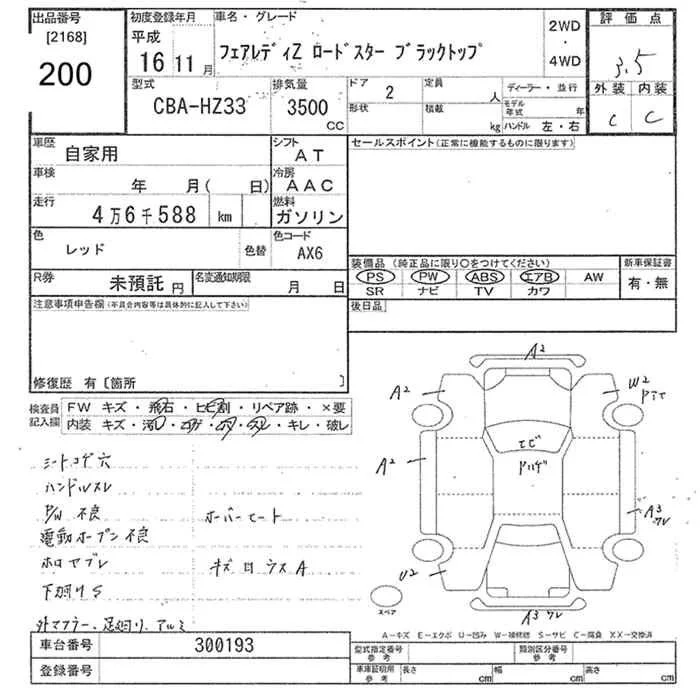 出品番号 [2168] 200
初度登録年月 平成 16 11月
車名・グレード フェアレディZ ロードスター ブラックトップ
2WD ・ 4WD
評価点 3.5
外装 内装
C C
型式 CBA-HZ33
排気量 3500 CC
ドア 2
定員 人
形状
積載 kg
ディーラー・並行
モデル年式 年
ハンドル 左・右
車歴 自家用
シフト AT
車検 年 月( 日)
冷房 AAC
走行 4万6千588 km
燃料 ガソリン
色 レッド 色替
色コード AX6
R券 未預託 円
名変通知期限 月 日
セールスポイント(正常に機能するものに限ります)
装備品 (純正品に限り○をつけてください)
新車保証書
PS PW ABS エアB AW
SR ナビ TV カワ
有・無
後日品
注意事項申告欄(※具合内容等は具体的に記入して下さい)
修復歴 有 [箇所 ]
検査員記入欄
FW キズ・飛石・ヒビ割・リペア跡・×要
内装 キズ・汚レ・コゲ・穴・スレ・キレ・破レ
シートコゲ穴
ハンドルスレ
P/W 不良 オーバーヒート
電動オープン不良
ホロヤブレ キズ凹ウスA
下廻りS
外マフラー、足廻り、アルミ
A2
A2
W2
A2
トビ
A3
U2
A3 ワレ
スペア
A-キズ E-エクボ U-凹み W-補修跡 S-サビ C-腐食 XX-交換済
車台番号 300193
登録番号
型式指定番号 参考
類別区分番号 参考
車庫証明用 参考
長さ cm
幅 cm
高さ cm